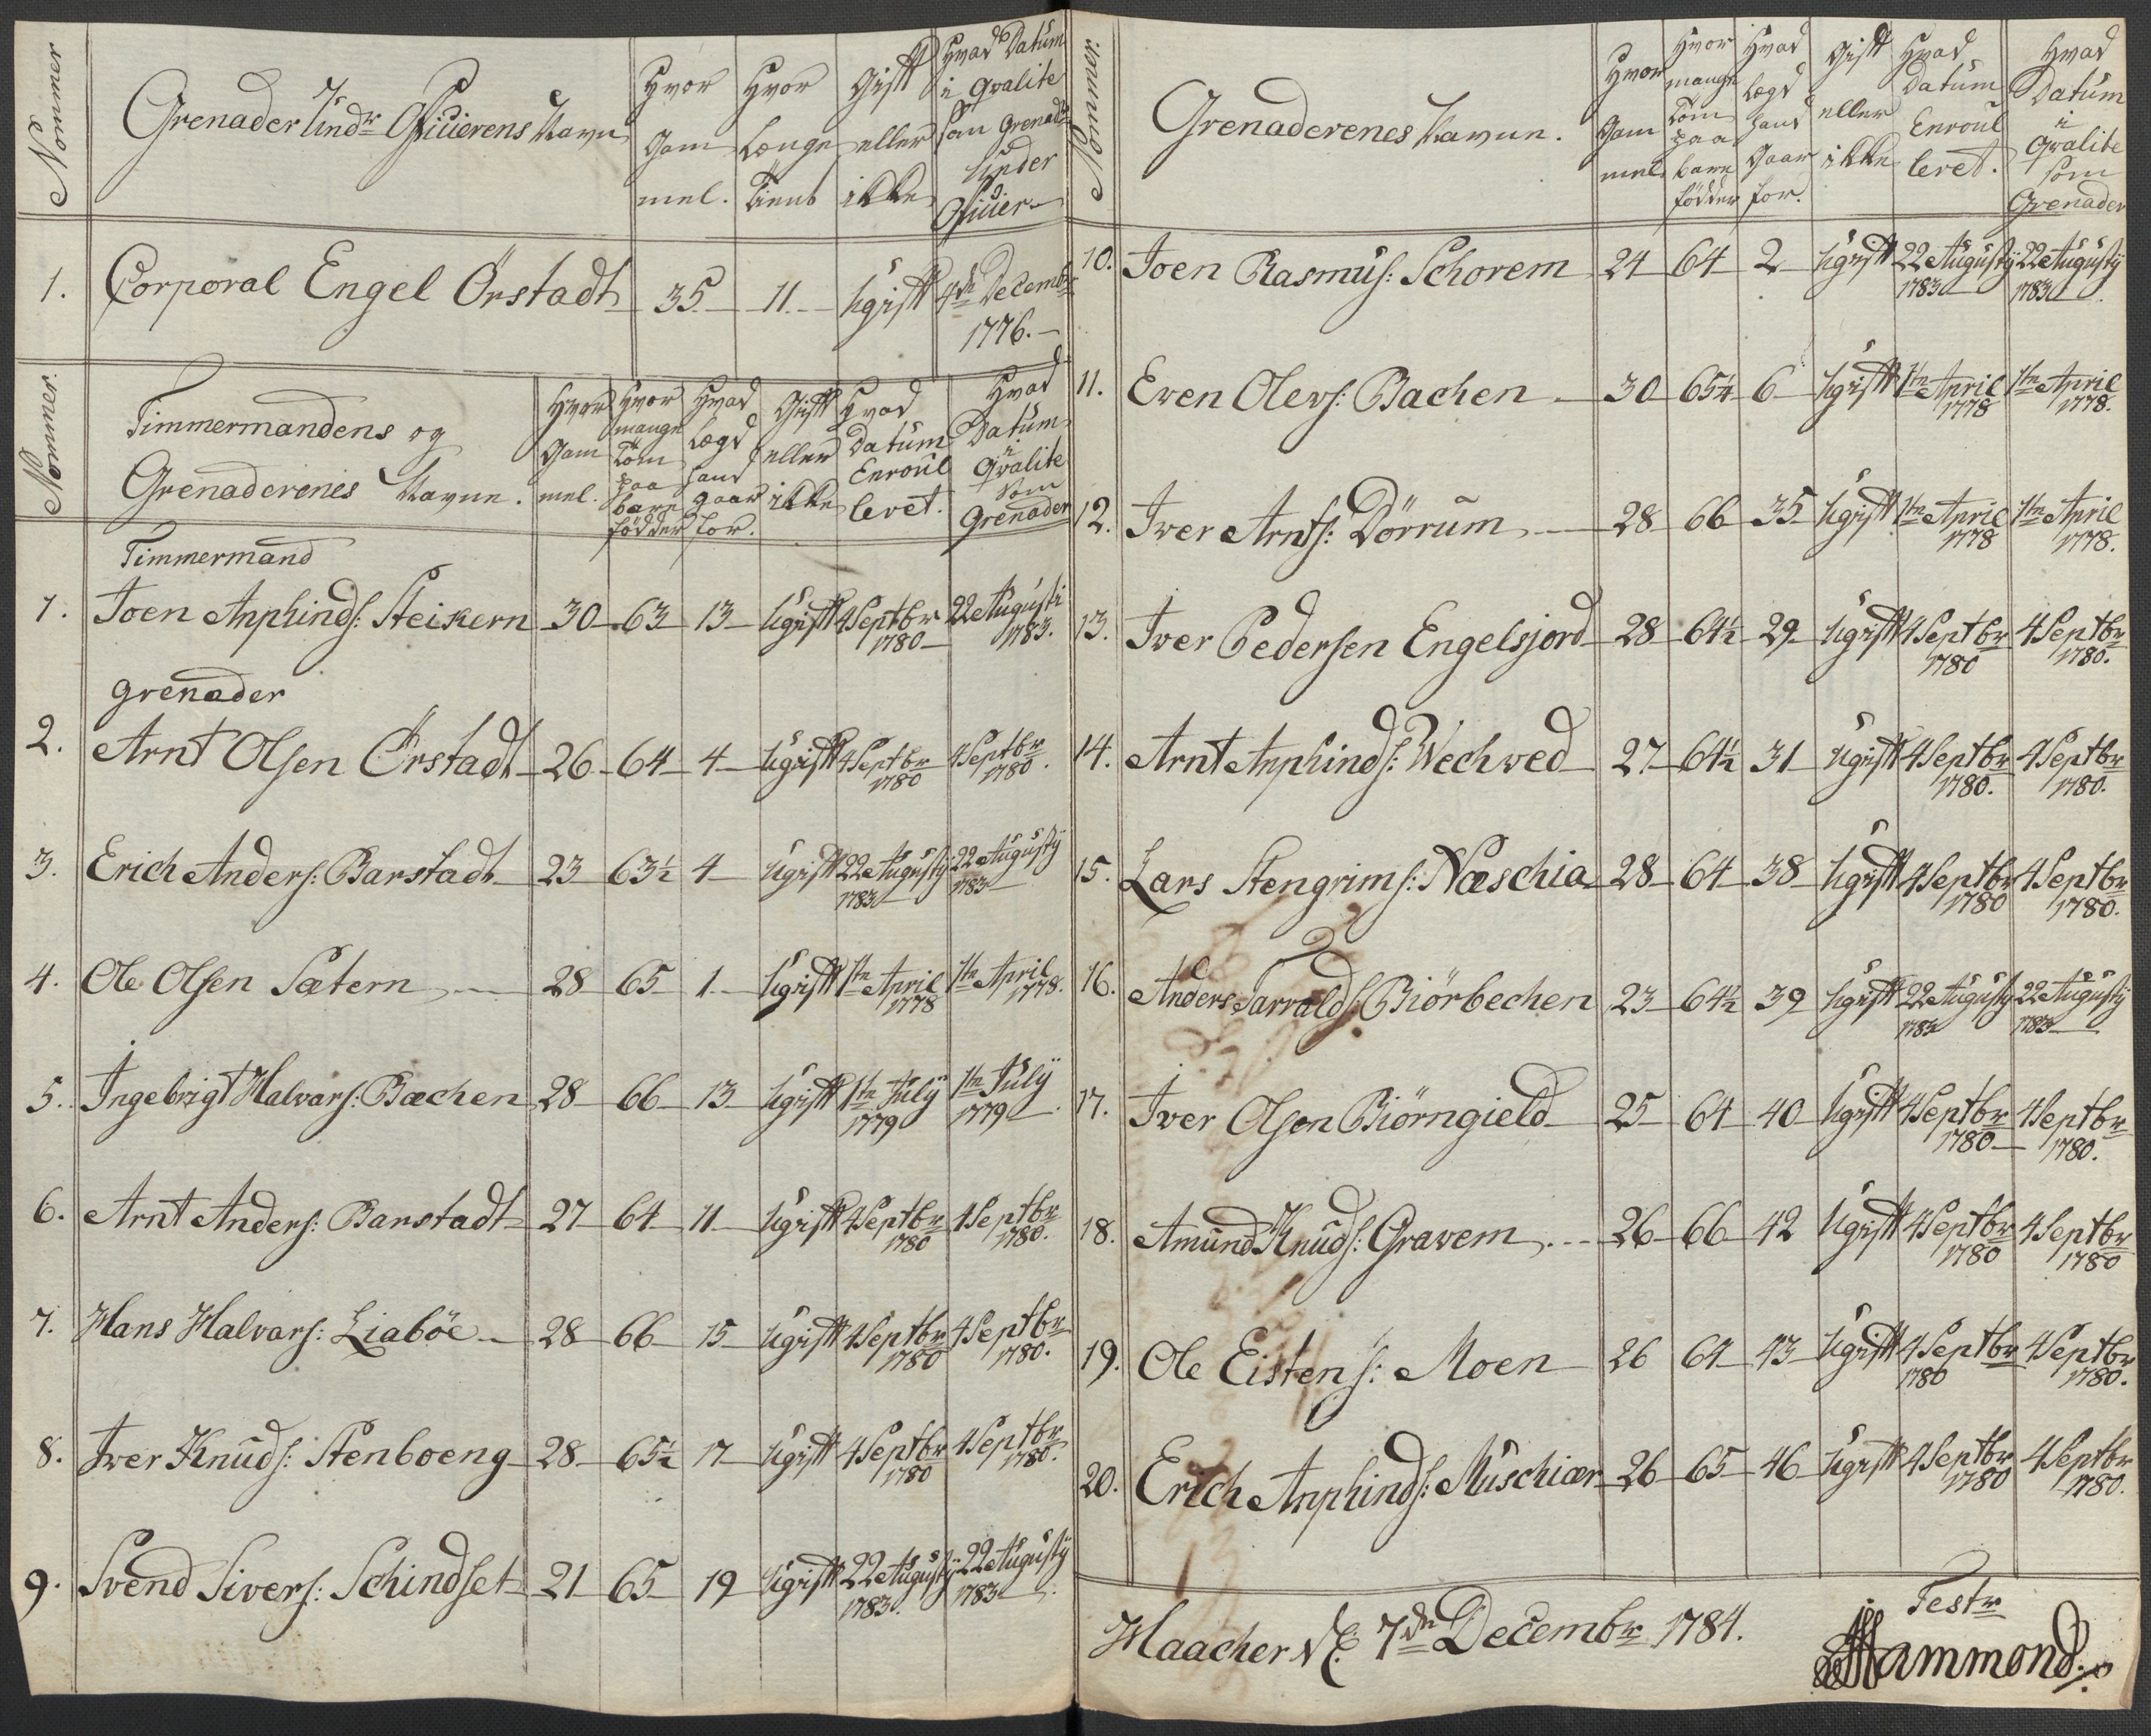 Nommer
Grenader Undr Officierens Navn
Hvor Gammel.
Hvor Længe Tient
Gift eller ikke
Hvad Datum i Qvalite som Grenadr Under Officier
1. Corporal Engel Örstadt 35 11 Ugift 4de Decembr 1776.
Nommer.
Timmermandens og Grenaderenes Navne.
Hvor Gammel.
Hvor mange Tom paa bare födder
Hvad Lægd hand gaar for.
Gift eller ikke
Hvad Datum Enroulleret.
Hvad Datum i Qvalite som Grenader
Timmermand
1. Joen Anphinds: Steikern 30 63 13 Ugift 4 Septbr 1780 22 Augusti 1783.
Grenader
2. Arnt Olsen Örstadt 26 64 4 Ugift 4 Septbr 1780 4 Septbr 1780.
3. Erich Anders: Barstadt 23 63½ 4 Ugift 22 Augustÿ 1783 22 Augustÿ 1783
4. Ole Olsen Sætern 28 65 1 Ugift 1te April 1778 1te April 1778.
5. Ingebrigt Halvars: Bæchen 28 66 13 Ugift 1te Julÿ 1779 1te Julÿ 1779
6. Arnt Anders: Barstadt 27 64 11 Ugift 4 Septbr 1780 4 Septbr 1780.
7. Hans Halvars: Liaböe 28 66 15 Ugift 4 Septbr 1780 4 Septbr 1780.
8. Iver Knuds: Stenboeng 28 65½ 17 Ugift 4 Septbr 1780 4 Septbr 1780.
9. Svend Sivers: Schindset 21 65 19 Ugift 22 Augustÿ 1783. 22 Augustÿ 1783
Nommer.
Grenaderenes Navne.
Hvor Gammel
Hvor mange Tom paa bare födder
Hvad Lægd hand Gaar for.
Gift eller ikke
Hvad Datum Enroulleret.
Hvad Datum i Qvalite som Grenader
10. Joen Rasmus: Schorem 24 64 2 Ugift 22 Augustÿ 1783 22 Augustÿ 1783
11. Even Olevs: Bachen 30 65¼ 6 Ugift 1te April 1778 1te April 1778.
12. Iver Arnts: Dörrum 28 66 35 Ugift 1te April 1778 1te April 1778.
13. Iver Pedersen Engelsjord 28 64½ 29 Ugift 4 Septbr 1780 4 Septbr 1780.
14. Arnt Anphinds: Wechved 27 64½ 31 Ugift 4 Septbr 1780. 4 Septbr 1780.
15. Lars Stengrims: Næschia 28 64 38 Ugift 4 Septbr 1780 4 Septbr 1780.
16. Anders Tarralds: Biörbechen 23 64½ 39 Ugift 22 Augustÿ 1783 22 Augustÿ 1783
17. Iver Olsen Biörngield 25 64 40 Ugift 4 Septbr 1780 4 Septbr 1780.
18. Amund Knuds: Gravem 26 66 42 Ugift 4 Septbr 1780 4 Septbr 1780
19. Ole Eistens: Moen 26 64 43 Ugift 4 Septbr 1780 4 Septbr 1780.
20. Erich Anphinds: Muschiær 26 65 46 Ugift 4 Septbr 1780 4 Septbr 1780.
Haacher d: 7de Decembr 1784.
Testr
Hammond